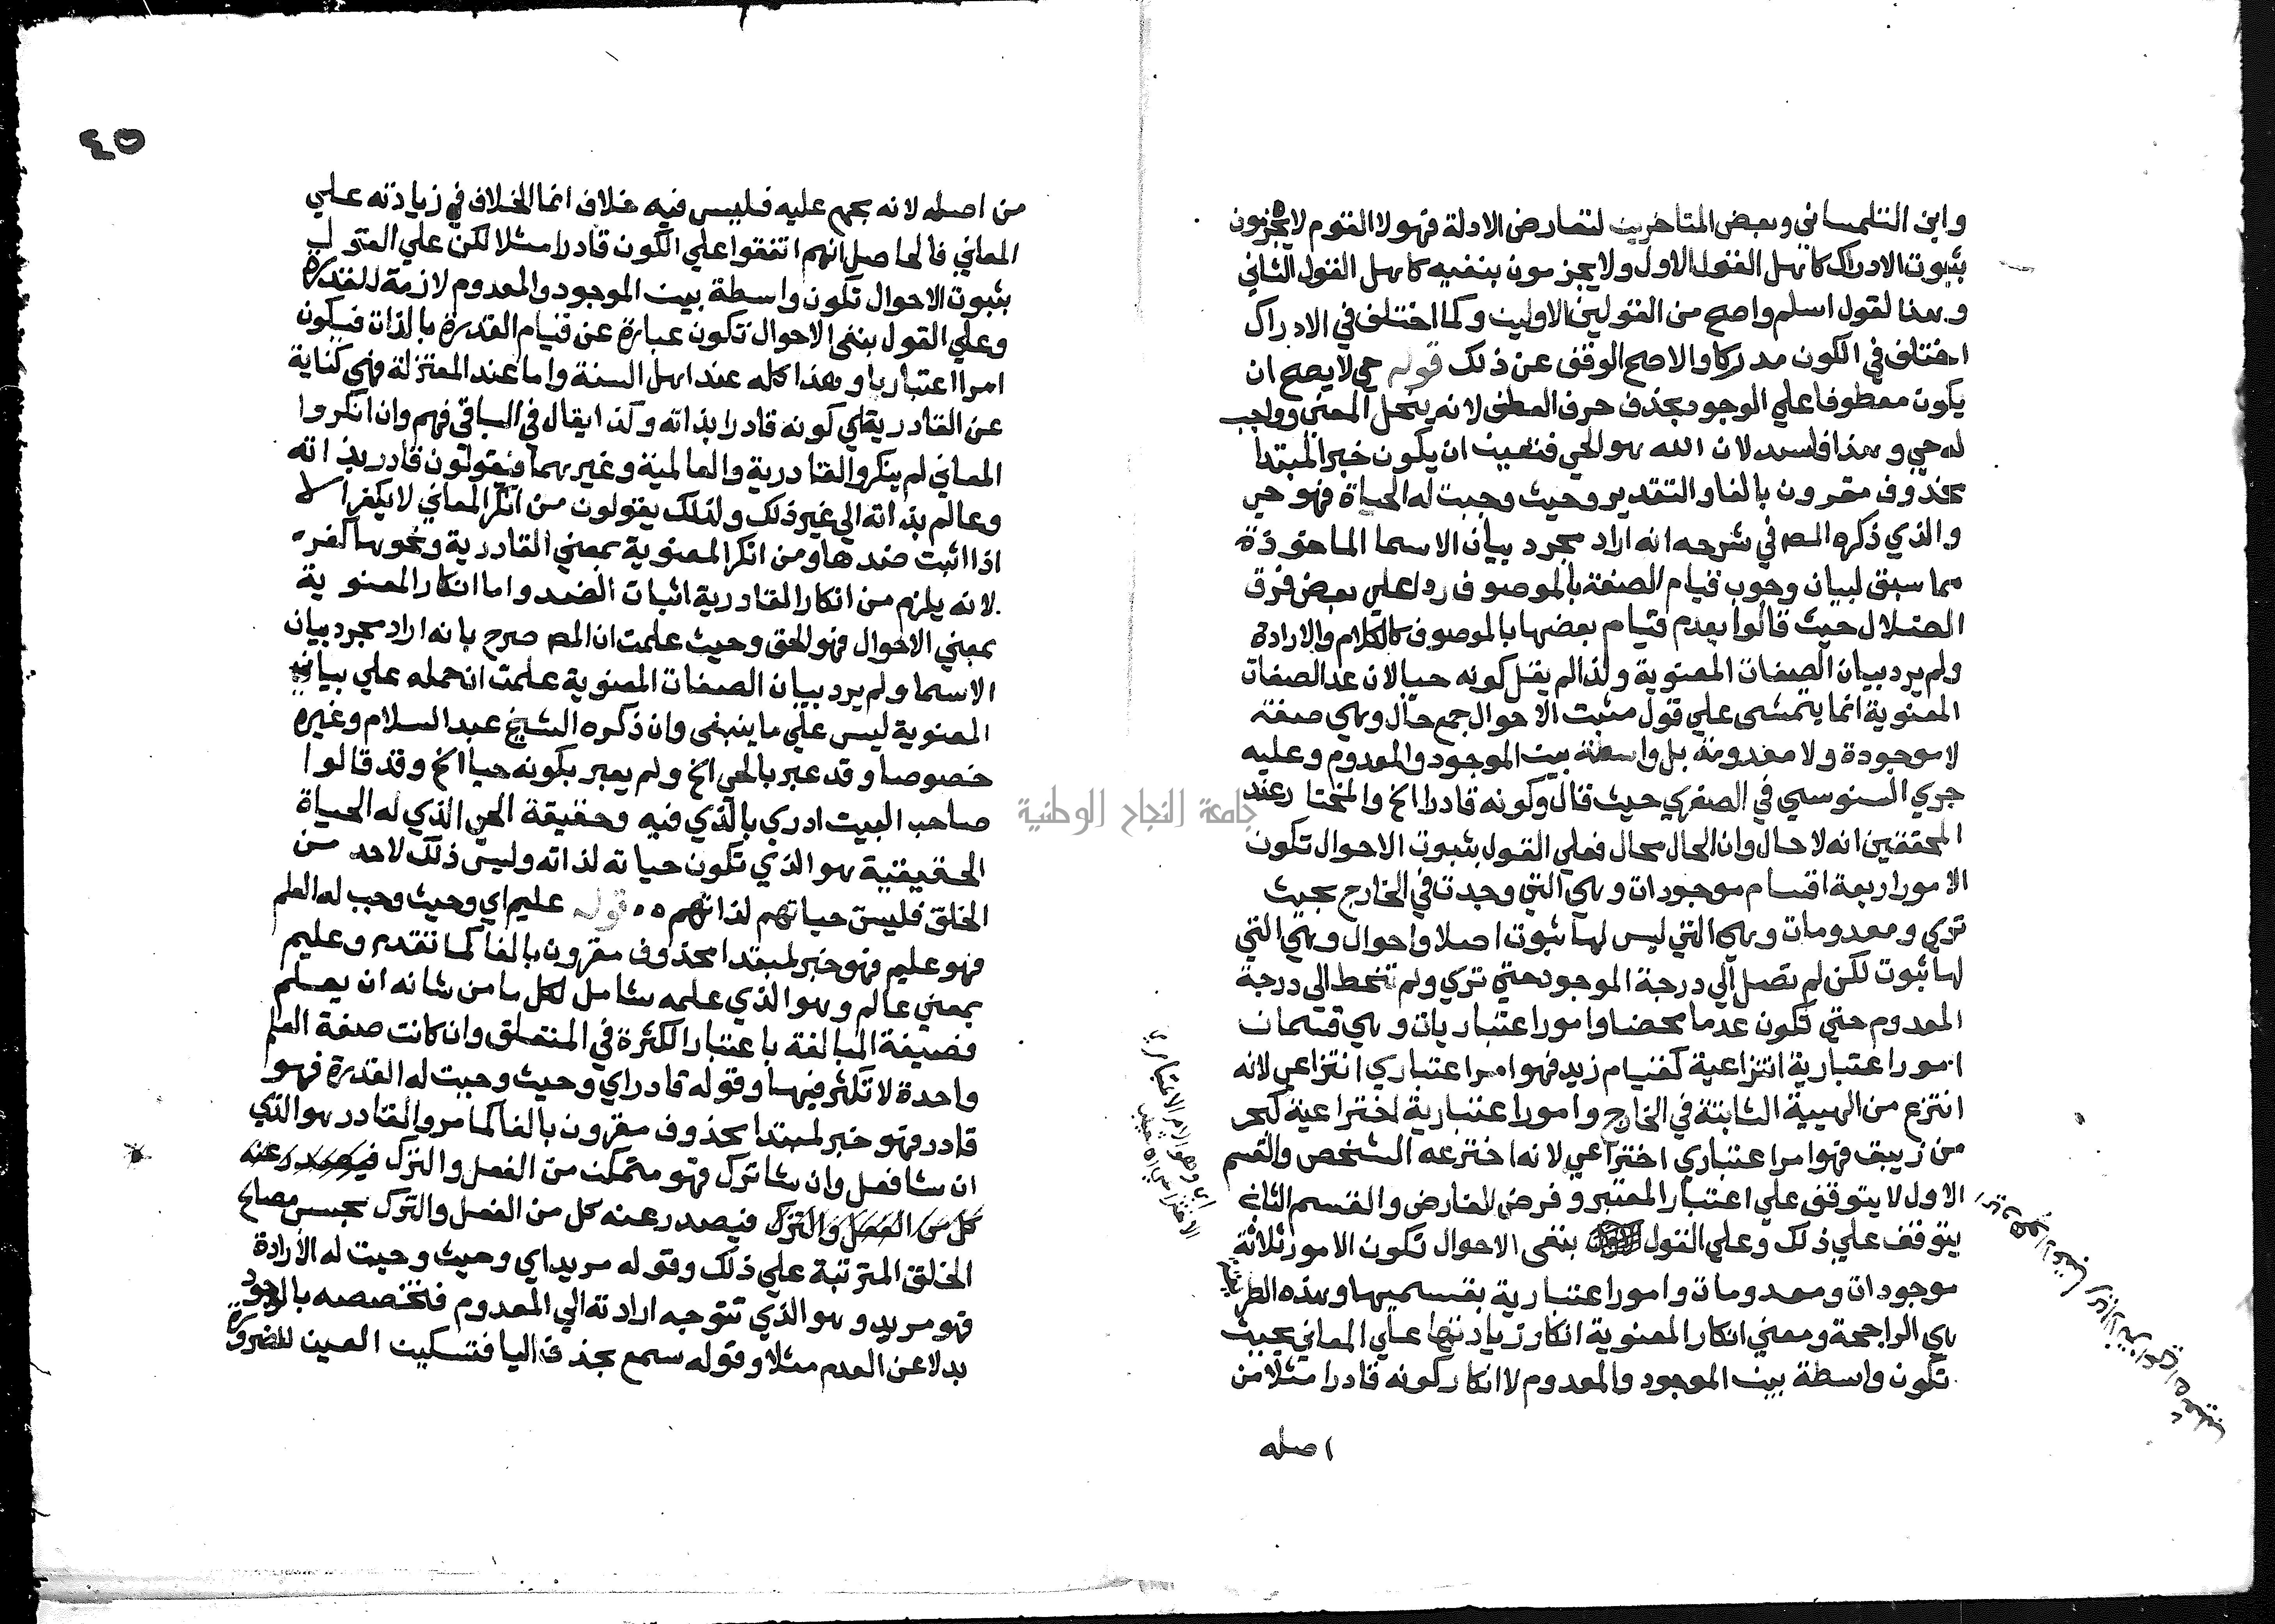 وابن التلمساني وبعض المتاخرين لتعارض الادلة فهولا القوم لا يجزمون
بثبوت الادراك كاهل القول الاول ولا يجزمون بنفيه كاهل القول الثاني
وهذا القول اسلم واصح من القولين الاولين وكما اختلف في الادراك
اختلف في الكون مدركا والاصح الوقف عن ذلك قوله حي لا يصح ان
يكون معطوفا علي الوجود بحذف حرف العطف لانه ينحل المعني وواجب
له حي وهذا فاسد لان الله هو الحي فتعين ان يكون خبرا لمبتدا
محذوف مقرون بالفا والتقدير وحيث وجبت له الحياة فهو حي
والذي ذكره المص في شرحه انه اراد مجرد بيان الاسما الماخوذة
مما سبق لبيان وجوب قيام الصفة بالموصوف ردا علي بعض فرق
الضلال حيث قالوا بعدم قيام بعضها بالموصوف كالكلام والارادة
ولم يرد بيان الصفات المعنوية ولذا لم يقل كونه حيا لان عد الصفات
المعنوية انما يتمشى علي قول مثبت الاحوال جمع حال وهي صفة
لا موجودة ولا معدومة بل واسطة بين الموجود والمعدوم وعليه
جري السنوسي في الصغري حيث قال وكونه قادرا الخ والمختار عند
المحققين انه لا حال وان الحال محال فعلي القول بثبوت الاحوال تكون
الامور اربعة اقسام موجودات وهي التي وجدت في الخارج بحيث
تري ومعدومات وهي التي ليس لها ثبوت اصلا واحوال وهي التي
لها ثبوت لكن لم تصل الي درجة الموجود حتي تري ولم تنحط الي درجة
المعدوم حتي تكون عدما محضا وامورا اعتباريات وهي قسمان
امورا عتبارية انتزاعية كقيام زيد فهو امرا عتباري انتزاعي لانه
انتزع من الهيية الثابتة في الخارج وامورا عتبارية اختراعية كبحر
من زيبق فهوا مرا عتباري اختراعي لانه اخترعه الشخص والقسم
الاول لا يتوقف علي اعتبار المعتبر وفرض الفارض والقسم الثاني
يتوقف علي ذلك وعلي القول بنفى الاحوال تكون الامور ثلاثة
موجودات ومعدومات وامورا عتبارية بقسميها وهذه الطريقة
هي الراجحة ومعني انكار المعنوية انكار زيادتها علي المعاني بحيث
تكون واسطة بين الموجود والمعدوم لا انكار كونه قادرا مثلا من
اصله
جامعة النجاح الوطنية
٤٥
من اصله لانه مجمع عليه فليس فيه خلاف انما الخلاف في زيادته علي
المعاني فالحاصل انهم اتفقوا علي الكون قادرا مثلا لكن علي القول
بثبوت الاحوال تكون واسطة بين الموجود والمعدوم لازمة للقدرة
وعلي القول بنفى الاحوال تكون عبارة عن قيام القدرة بالذات فيكون
امرا اعتباريا وهذا كله عند اهل السنة واما عند المعتزلة فهي كناية
عن القادرية اي كونه قادرا بذاته وكذا يقال في الباقي فهم وان انكروا
المعاني لم ينكروا القادرية والعالمية وغيرهما فيقولون قادر بذاته
وعالم بذاته الي غير ذلك ولذلك يقولون من انكر المعاني لا يكفر الا
اذا اثبت ضدها ومن انكر المعنوية بمعني القادرية ونحوها كفر
لانه يلزم من انكار القادرية اثبات الضد واما انكار المعنوية
بمعني الاحوال فهو الحق وحيث علمت ان المص صرح بانه اراد مجرد بيان
الاسما ولم يرد بيان الصفات المعنوية علمت ان حمله علي بيان
المعنوية ليس علي ما ينبغى وان ذكره الشيخ عبد السلام وغيره
خصوصا وقد عبر بالحي الخ ولم يعبر بكونه حيا الخ وقد قالوا
صاحب البيت ادري بالذي فيه وحقيقة الحي الذي له الحياة
الحقيقية هو الذي تكون حياته لذاته وليس ذلك لاحد من
الخلق فليست حياتهم لذاتهم قوله عليم اي وحيث وجب له العلم
فهو عليم فهو خبر لمبتدا محذوف مقرون بالفا كما تقدم وعليم
بمعني عالم وهو الذي علمه شامل لكل ما من شانه ان يعلم
فصيغة المبالغة باعتبار الكثرة في المتعلق وان كانت صفة العلم
واحدة لا تكثر فيها وقوله قادر اي وحيث وجبت له القدرة فهو
قادر فهو خبر لمبتدا محذوف مقرون بالفا كما مر والقادر هو الذي
ان شا فعل وان شا ترك فهو متمكن من الفعل والترك فيصدر عنه
كل من الفعل والترك فيصدر عنه كل من الفعل والترك بحسب مصالح
الخلق المترتبة علي ذلك وقوله مريد اي وحيث وجبت له الارادة
فهو مريد وهو الذي تتوجه ارادته الي المعدوم فتخصصه بالوجود
بدلا عن العدم مثلا وقوله سمع بحذف اليا فتسكين العين للضرورة